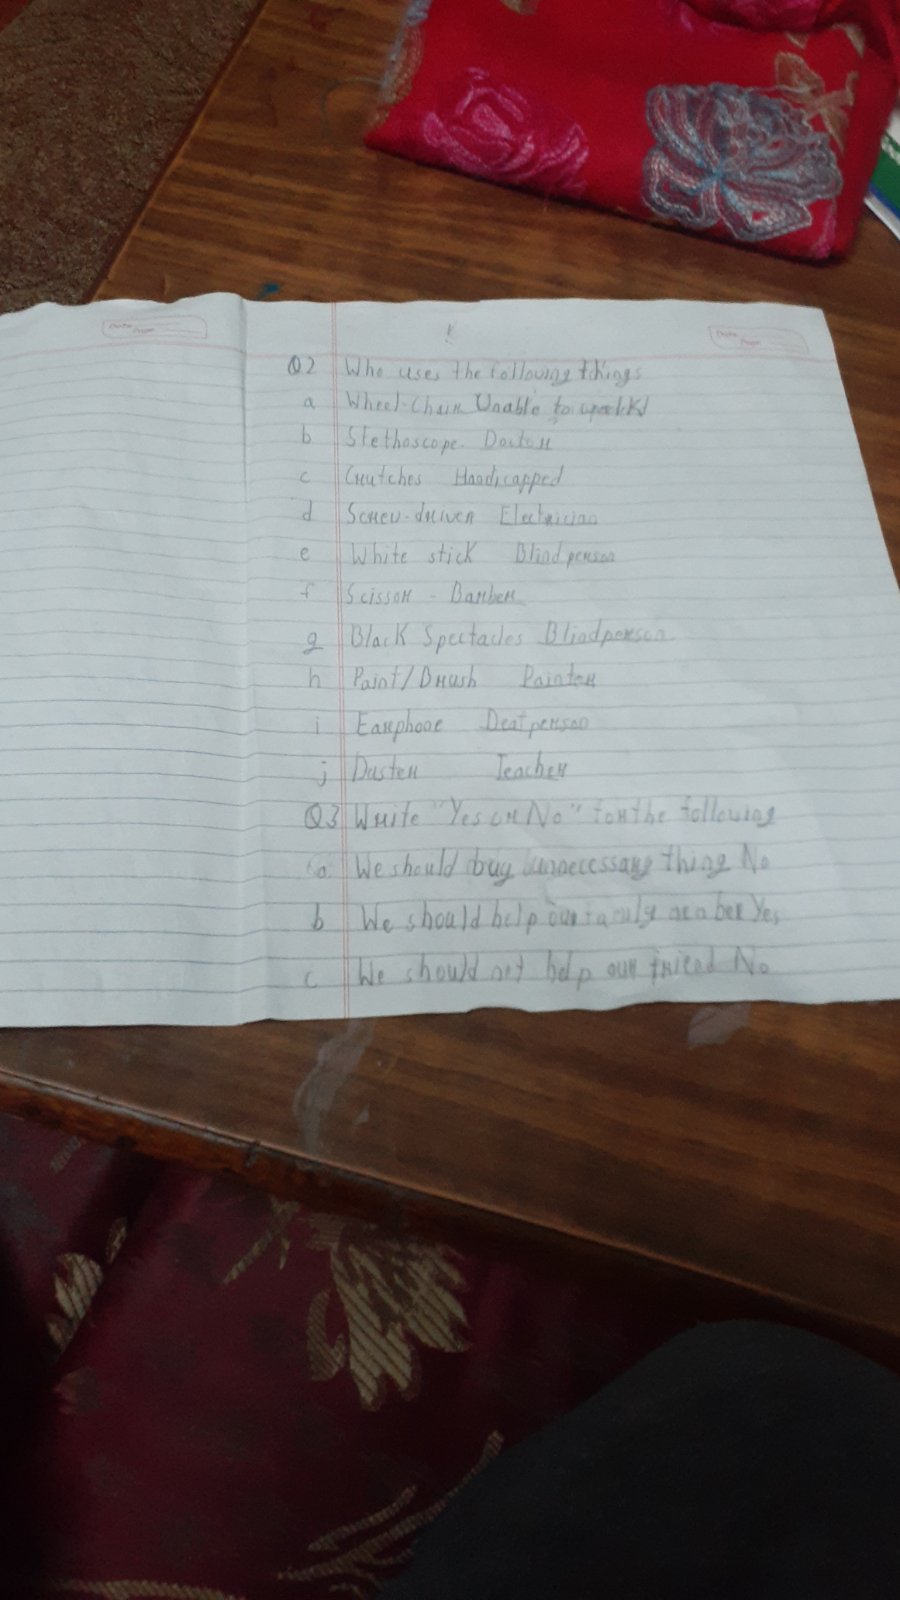 Date
Page
Date
Page
Q2 Who uses the following things
a Wheel-Chair Unable to
b Stethoscope Doctor
c Crutches Handicapped
d Screw-driver Electrician
e White stick Blind person
f Scissor - Barber
g Black Spectacles Blind person
h Paint/Brush Painter
i Earphone Deaf person
j Duster Teacher
Q3 Write "Yes or No" for the following
a We should buy unnecessary thing No
b We should help our Yes
c We should not help our friend No